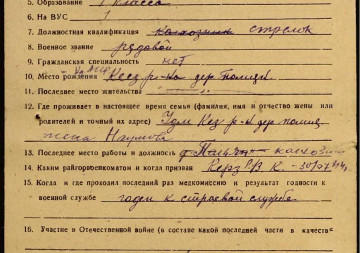 5. Образование 1 класса
6. На ВУС 1
7. Должностная квалификация стрелок
8. Военное звание рядовой
9. Гражданская специальность нет
10. Место рождения Кез р-на дер
11. Последнее место жительства
12. Где проживает в настоящее время семья (фамилия, имя и отчество жены или
родителей и точный их адрес) Удм Кез р-н дер
жена Наумова
13. Последнее место работы и должность колхозник
14. Каким райгоргоенкоматом и когда призван РВК
15. Когда и где проходил последний раз медкомиссию и результат годности к
военной службе годен к строевой службе
16. Участие в Отечественной войне (в составе какой последней части в качестве